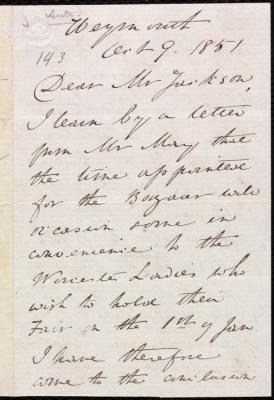 Weymouth
143 Oct 9. 1851
Dear Mr Jackson,
I learn by a letter
from Mr May that
the time appointed
for the Bazaar will
occasion some in
convenience to the
Worcester Ladies who
wish to hold their
Fair on the 1st of Jan.
I have therefore
come to the conclusion